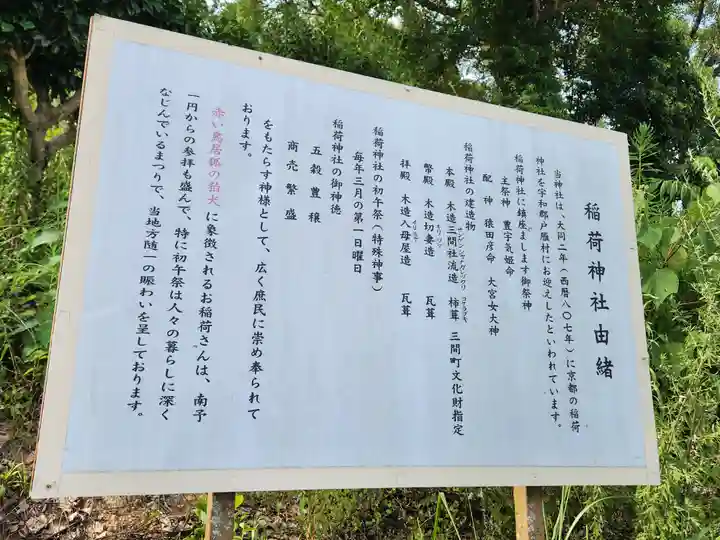 稲荷神社由緒
当神社は、大同二年(西暦八〇七年)に京都の稲荷
神社を宇和郡戸雁村にお迎えしたといわれています。
稲荷神社に鎮座まします御祭神
主祭神 豊宇気姫命
配神 猿田彦命 大宮女大神
稲荷神社の建造物
本殿 木造三間社流造 杮葺 三間町文化財指定
幣殿 木造切妻造 瓦葺
拝殿 木造入母屋造 瓦葺
稲荷神社の初午祭(特殊神事)
毎年三月の第一日曜日
稲荷神社の御神徳
五穀豊穣
商売繁盛
をもたらす神様として、広く庶民に崇め奉られて
おります。
赤い鳥居狐の狛犬に象徴されるお稲荷さんは、南予
一円からの参拝も盛んで、特に初午祭は人々の暮らしに深く
なじんでいるまつりで、当地方随一の賑わいを呈しております。